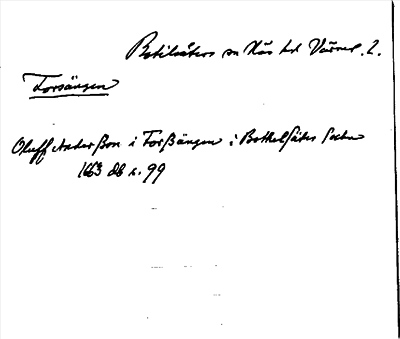 Botilsäters sn Näs hd Värml. l.
Forsängen
Oluff Anderßon i Forßängen i Bothelsäter Sochn
1663 db s. 99